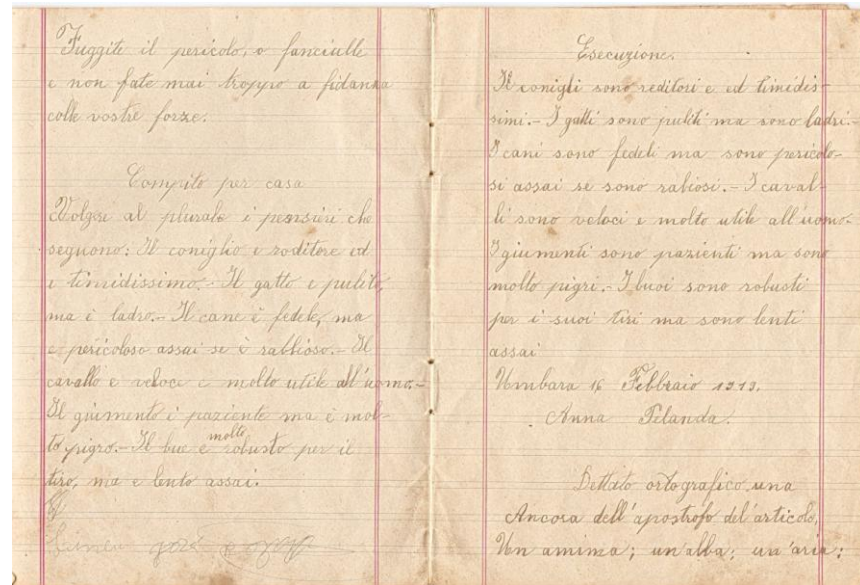 Fuggite il pericolo, o fanciulle
e non fate mai troppo a fidanza
colle vostre forze.
Compito per casa
Volgere al plurale i pensieri che
seguono: Il coniglio e roditore ed
e timidissimo. - Il gatto e pulito,
ma è ladro. - Il cane è fedele, ma
e pericoloso assai se è rabbioso. - Il
cavallo e veloce e molto utile all'uomo. -
Il giumento è paziente ma è mol-
to pigro. - Il bue e molto robusto per il
tiro, ma e lento assai.
Esecuzione.
Il conigli sono reditori e ed timidis-
simi. - I gatti sono puliti ma sono ladri. -
I cani sono fedeli ma sono pericolo-
si assai se sono rabiosi. - I caval-
li sono veloci e molto utile all'uomo. -
I giumenti sono pazienti ma sono
molto pigri. - I buoi sono robusti
per i suoi tiri ma sono lenti
assai
Umbara 16 Febbraio 1919.
Anna Pelanda.
Dettato ortografico una
Ancora dell'apostrofo del'articolo,
Un amima; un'alba; un'aria;